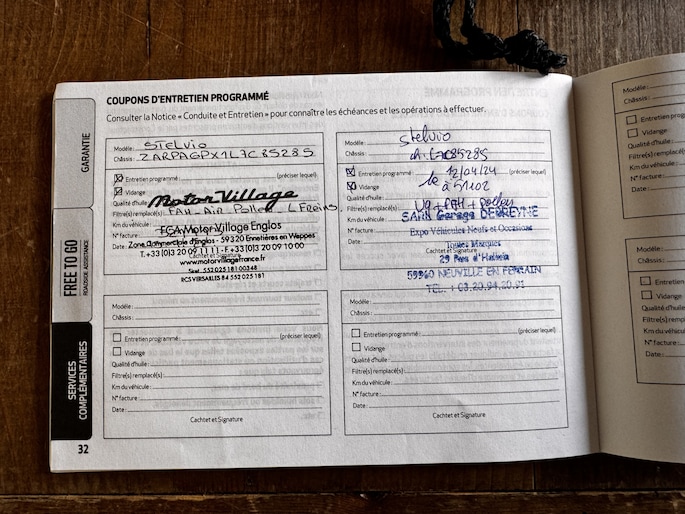 COUPONS D'ENTRETIEN PROGRAMMÉ
Consulter la Notice « Conduite et Entretien » pour connaître les échéances et les opérations à effectuer.
GARANTIE
FREE TO GO
ROADSIDE ASSISTANCE
SERVICES
COMPLÉMENTAIRES
Modèle : Stelvio
Châssis : ZARPAGPX1L7C85285
Entretien programmé : (préciser lequel)
Vidange
Qualité d'huile
Motor Village
Filtre(s) remplacé(s) : FAH - Air Pollen L Freins.
Km du véhicule
FGA Motor Village Englos
N° facture :
Zone Commerciale d'Englos - 59320 Ennetières en Weppes
Date :
T. +33 (0)3 20 F. +33 (0)3 20 09 10 00
Cachet et Signature
www.motorvillagefrance.fr
Siret 552 025 181 00348
RCS VERSAILLES B 4 552 025 181
Modèle : Stelvio
Châssis : ch. L7C85285
Entretien programmé : 12/04/24 (préciser lequel)
Vidange le à 51102
Qualité d'huile :
Filtre(s) remplacé(s) : + FAH + Pollen
Km du véhicule : SARL Garage DERREYNE
N° facture : Expo Véhicules Neufs et Occasions
Date : Toutes Marques
Cachet et Signature
29 Rue d'Halluin
59960 NEUVILLE EN FERRAIN
TEL. : 03.20.94.20.91
Modèle :
Châssis :
Entretien programmé : (préciser lequel)
Vidange
Qualité d'huile :
Filtre(s) remplacé(s) :
Km du véhicule :
N° facture :
Date :
Cachtet et Signature
Modèle :
Châssis :
Entretien programmé : (préciser lequel)
Vidange
Qualité d'huile :
Filtre(s) remplacé(s) :
Km du véhicule :
N° facture :
Date :
Cachtet et Signature
32
Modèle :
Châssis :
Entretien prog
Vidange
Qualité d'huile :
Filtre(s) rempla
Km du véhicule
N° facture :
Date :
Modèle :
Châssis :
Entretien
Vidange
Qualité d'hu
Filtre(s) rem
Km du véhi
N° facture :
Date :